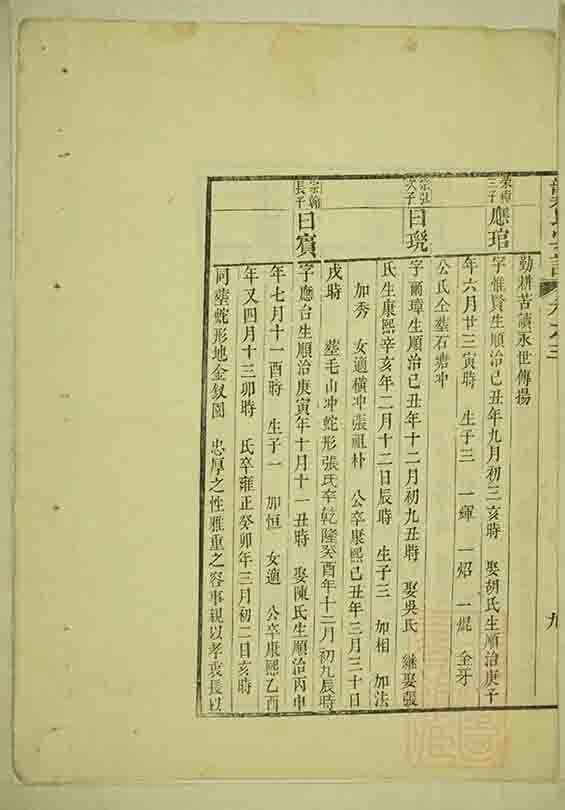 卷之三
九
勤耕苦讀永世傳揚
三子
應琯
字惟賢生順治己丑年九月初三亥時 娶胡氏生順治庚子
年六月廿三寅時 生子三 一輝 一炤 一焜 全牙
公氏仝塟石塘冲
宗弘次子
曰珖
字爾璋生順治己丑年十二月初九丑時 娶吳氏 継娶張
氏生康熙辛亥年二月十二日辰時 生子三 加相 加法
加秀 女適橫冲張祖朴 公卒康熙己丑年三月三十日
戌時 塟毛山冲蛇形張氏卒乾隆癸酉年十二月初九辰時
宗翰長子
曰賓
字應台生順治庚寅年十月十一丑時 娶陳氏生順治丙申
年七月十一酉時 生子一 加恒 女適 公卒康熙乙酉
年又四月十三卯時 氏卒雍正癸卯年三月初二日亥時
同塟蛇形地金釵圖 忠厚之性雅重之容事親以孝衷長以